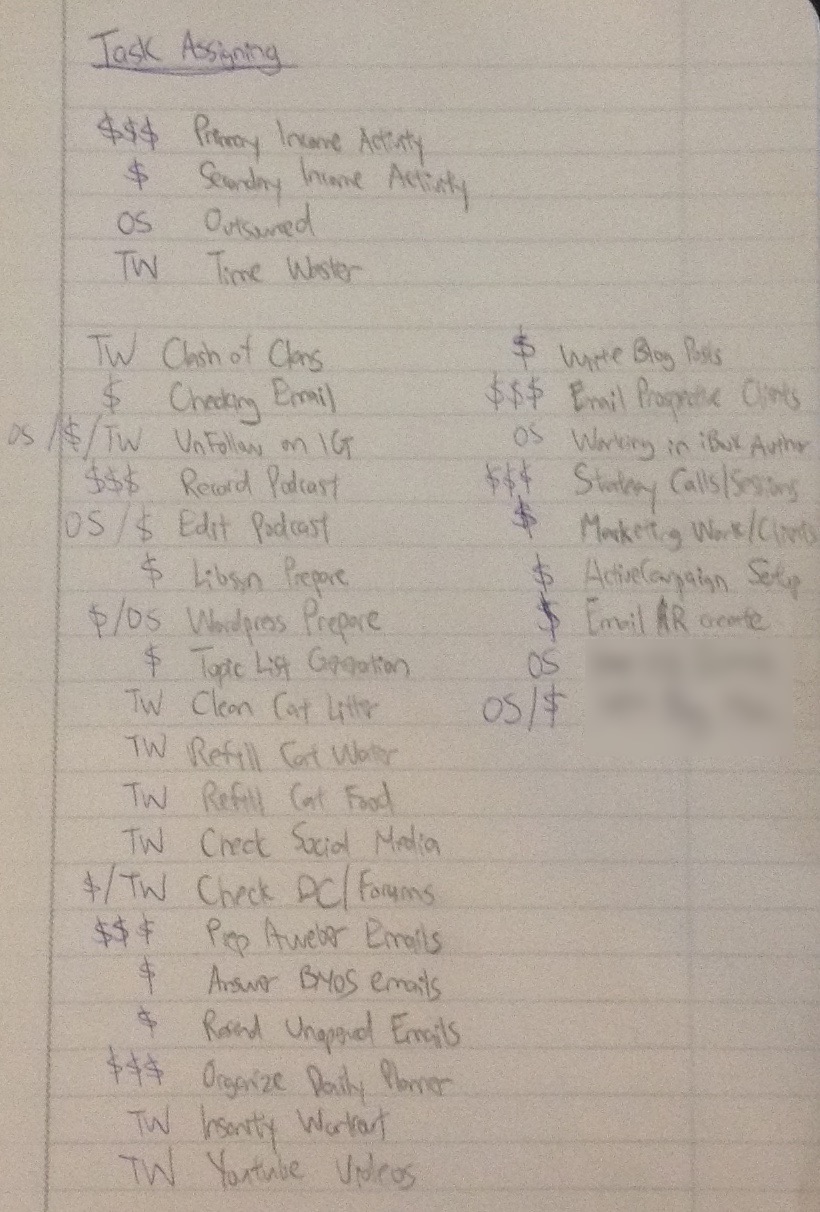 Task Assigning
$$$ Primary Income Activity
$ Secondary Income Activity
OS Outsourced
TW Time Waster
TW Clash of Clans
$ Checking Email
OS /$/TW UnFollow on IG
$$$ Record Podcast
OS / $ Edit Podcast
$ Libsyn Prepare
$/OS Wordpress Prepare
$ Topic List Generation
TW Clean Cat Litter
TW Refill Cat Water
TW Refill Cat Food
TW Check Social Media
$/TW Check DC/Forums
$$$ Prep Aweber Emails
$ Answer BYOS emails
$ Resend Unopened Emails
$$$ Organize Daily Planner
TW Insanity Workout
TW Youtube Videos
$ Write Blog Posts
$$$ Email Prospective Clients
OS Working in iBook Author
$$$ Strategy Calls/Sessions
$ Marketing Work/Clients
$ ActiveCampaign Setup
$ Email AR create
OS
OS/$